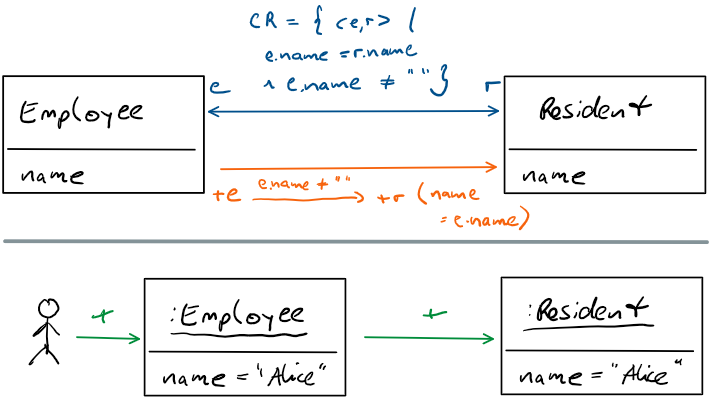 CR = { <e,r> |
e.name = r.name
e ∧ e.name ≠ ""} r
Employee
name
Resident
name
+e e.name ≠ "" +r (name
= e.name)
+
:Employee
name = "Alice"
+
:Resident
name = "Alice"